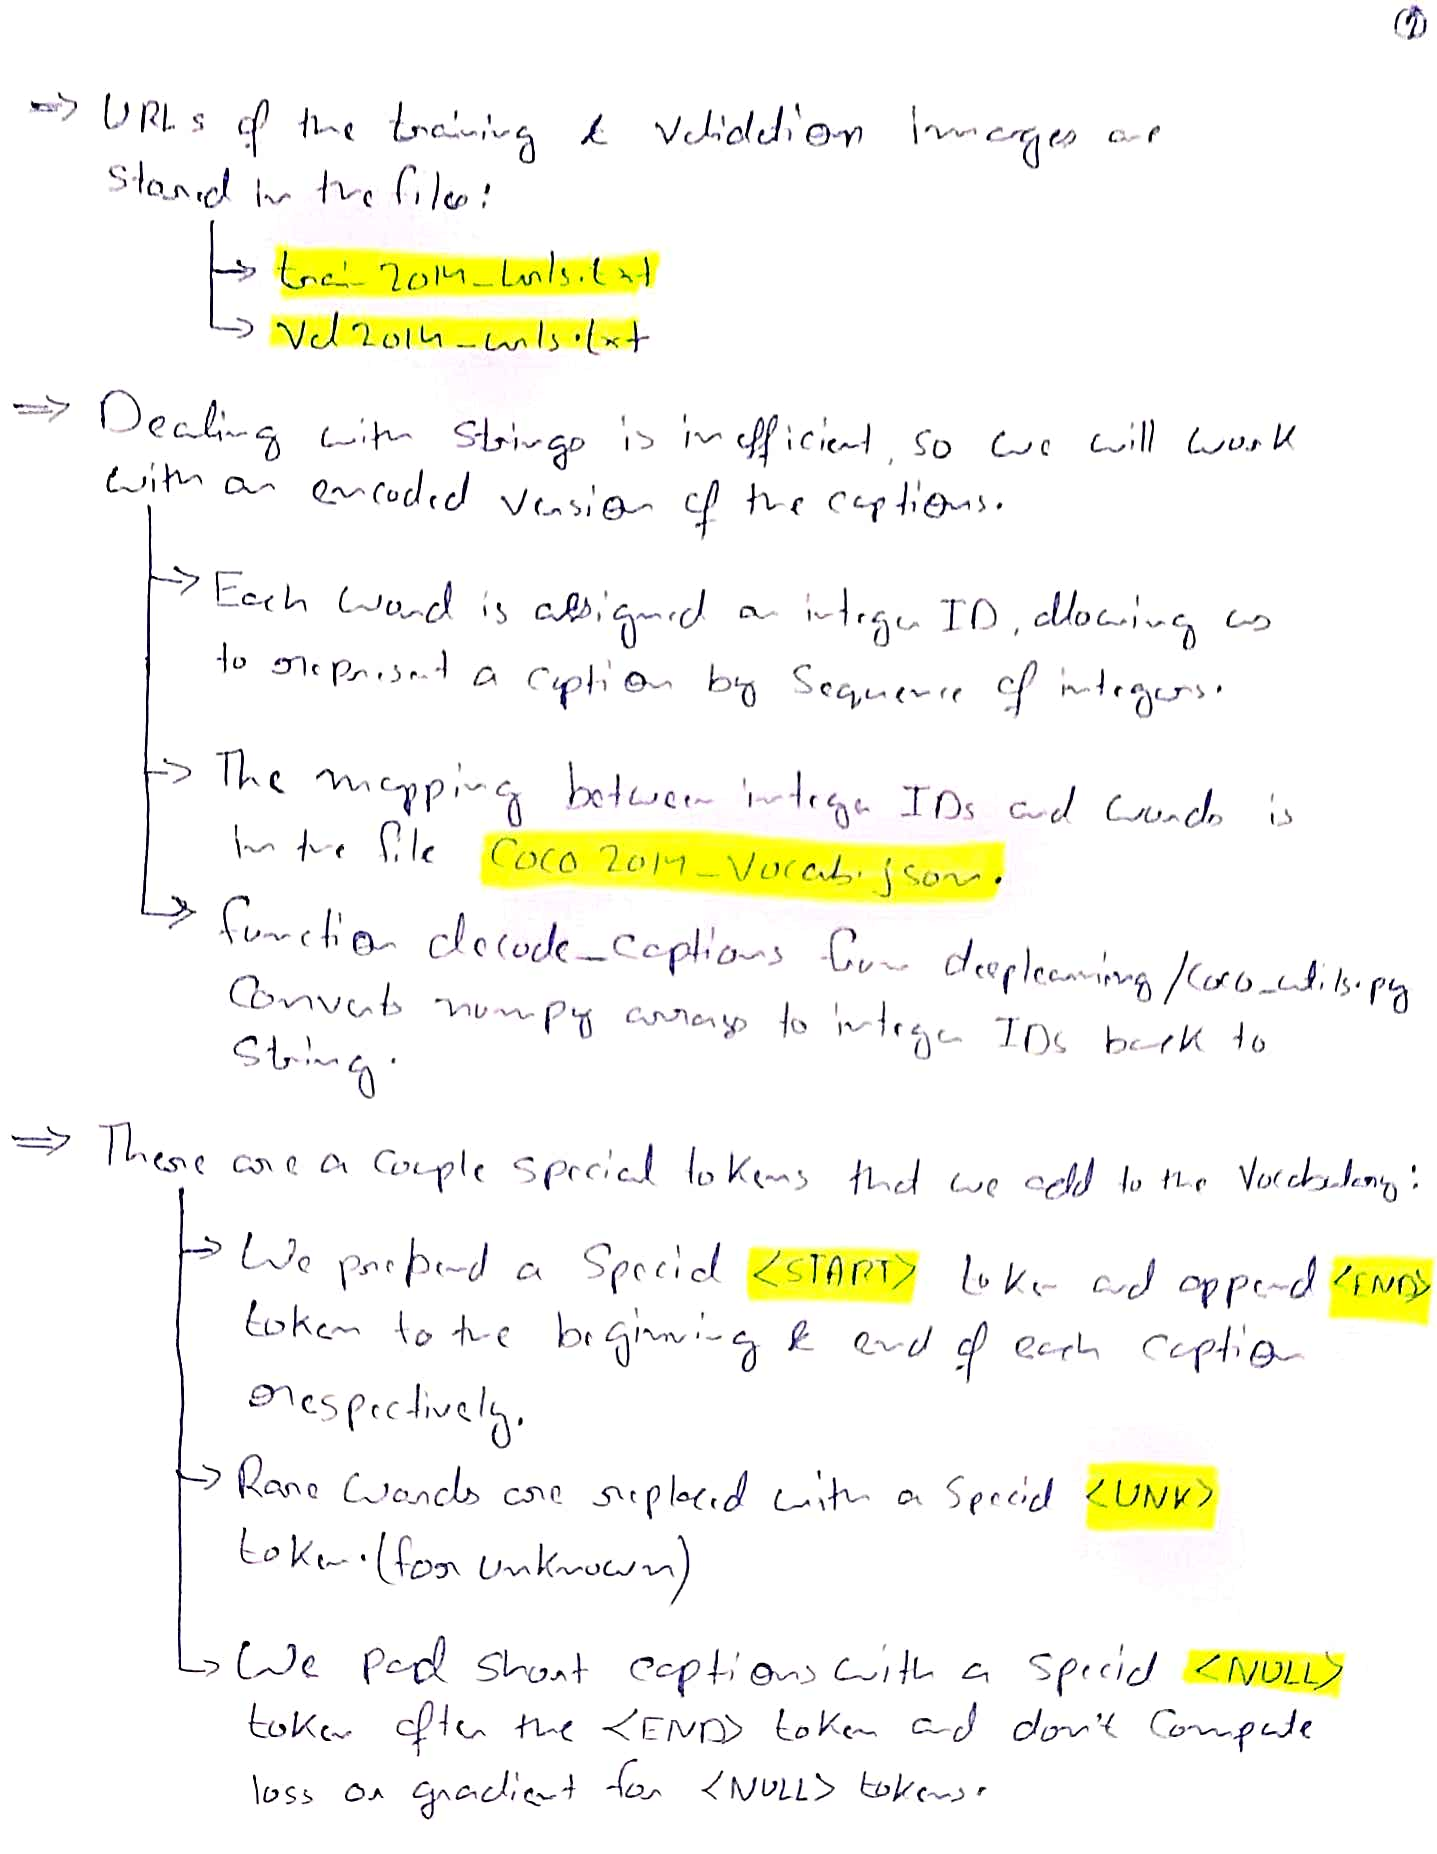 ②
⇒ URLs of the training & Validation Images are
stored in the files:
→ train2014_urls.txt
→ Val2014_urls.txt
⇒ Dealing with strings is inefficient, so we will work
with an encoded version of the captions.
→ Each word is assigned an integer ID, allowing us
to represent a caption by Sequence of integers.
→ The mapping between integer IDs and words is
in the file Coco2014_Vocab.json.
→ function decode_captions from deeplearning/coco_utils.py
Converts numpy arrays to integer IDs back to
String.
⇒ There are a couple special tokens that we add to the Vocabulary:
→ We prepend a Special <START> token and append <END>
token to the beginning & end of each caption
respectively.
→ Rare words are replaced with a Special <UNK>
token. (for unknown)
→ We pad short captions with a special <NULL>
token after the <END> token and don't compute
loss or gradient for <NULL> tokens.